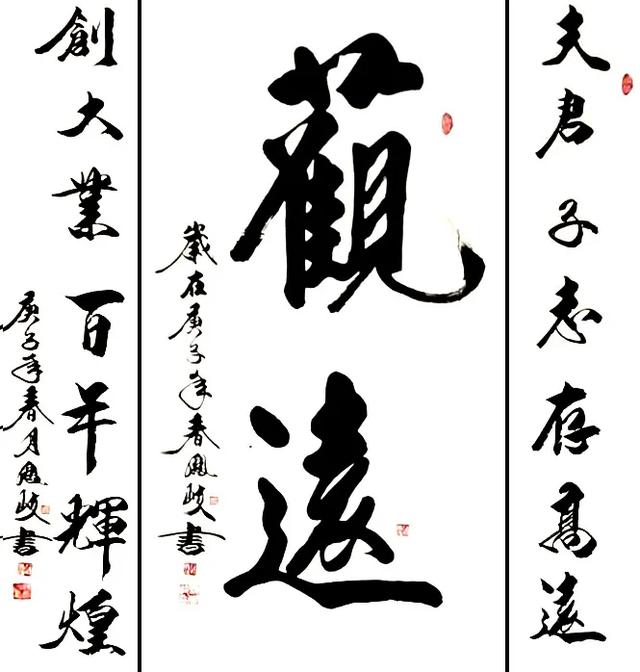 夫君子志存高遠
觀遠
歲在庚子年春鳳岐書
創大業百年輝煌
庚子年春月鳳岐書